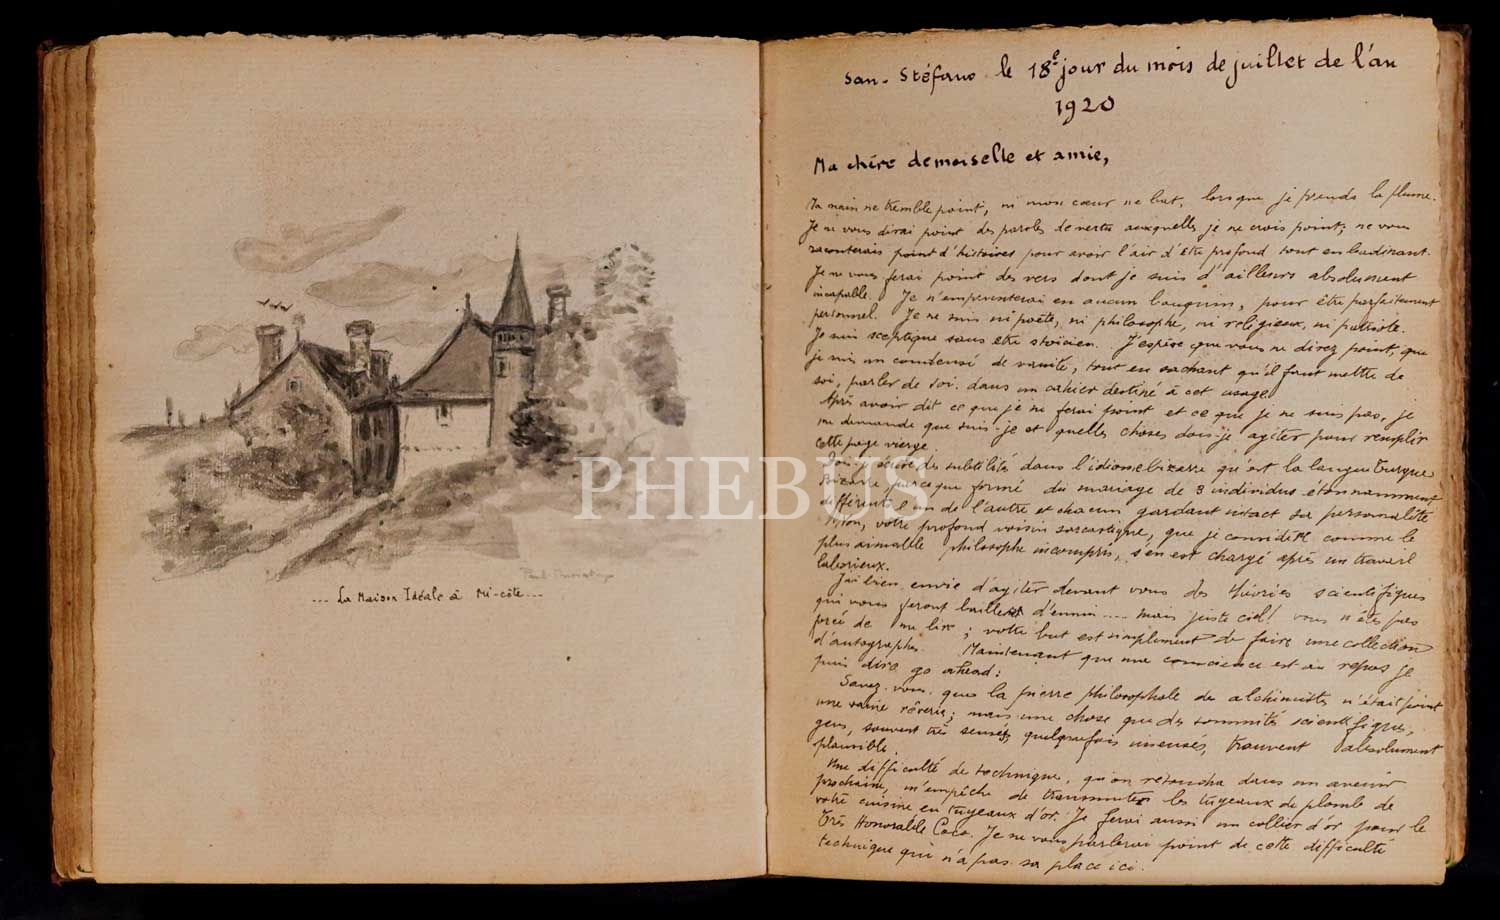 ... La Maison Idéale à Mi-côte ...
PHEBUS
San-Stéfano le 18e jour du mois de juillet de l'an
1920
Ma chère demoiselle et amie,
Ma main ne tremble point, ni mon cœur ne bat, lorsque je prends la plume.
Je ne vous dirai point des paroles de vertu auxquelles je ne crois point, ne vous
raconterais point d'histoires pour avoir l'air d'être profond tout en badinant.
Je ne vous ferai point des vers dont je suis d'ailleurs absolument
incapable. Je n'emprunterai en aucun bouquin, pour être parfaitement
personnel. Je ne suis ni poète, ni philosophe, ni religieux, ni patriote.
Je suis sceptique sans être stoïcien. J'espère que vous ne direz point, que
je suis un condensé de vanité, tout en sachant qu'il faut mettre de
soi, parler de soi dans un cahier destiné à cet usage.
Après avoir dit ce que je ne ferai point et ce que je ne suis pas, je
me demande que suis-je et quelles choses dois-je agiter pour remplir
cette page vierge.
des subtilités dans l'idiome bizarre qu'est la langue turque
Bizarre parce que formé du mariage de 3 individus étonnamment
différents l'un de l'autre et chacun gardant intact sa personnalité
Non, votre profond voisin sarcastique, que je considère comme le
plus aimable philosophe incompris, s'en est chargé après un travail
laborieux.
J'ai bien envie d'agiter devant vous des théories scientifiques
qui vous feront bailler d'ennui .... mais juste ciel! vous n'êtes pas
forcé de me lire ; votre but est simplement de faire une collection
d'autographes. Maintenant que ma conscience est au repos je
puis dire go ahead :
Savez-vous que la pierre philosophale des alchimistes n'était point
une vaine rêverie ; mais une chose que des sommités scientifiques,
gens, souvent très sensés, quelquefois insensés, trouvent absolument
plausible.
Une difficulté de technique, qu'on résoudra dans un avenir
prochain, m'empêche de transmuter les tuyeaux de plomb de
votre cuisine en tuyeaux d'or. Je ferai aussi un collier d'or pour le
Très Honorable Coco. Je ne vous parlerai point de cette difficulté
technique qui n'a pas sa place ici.